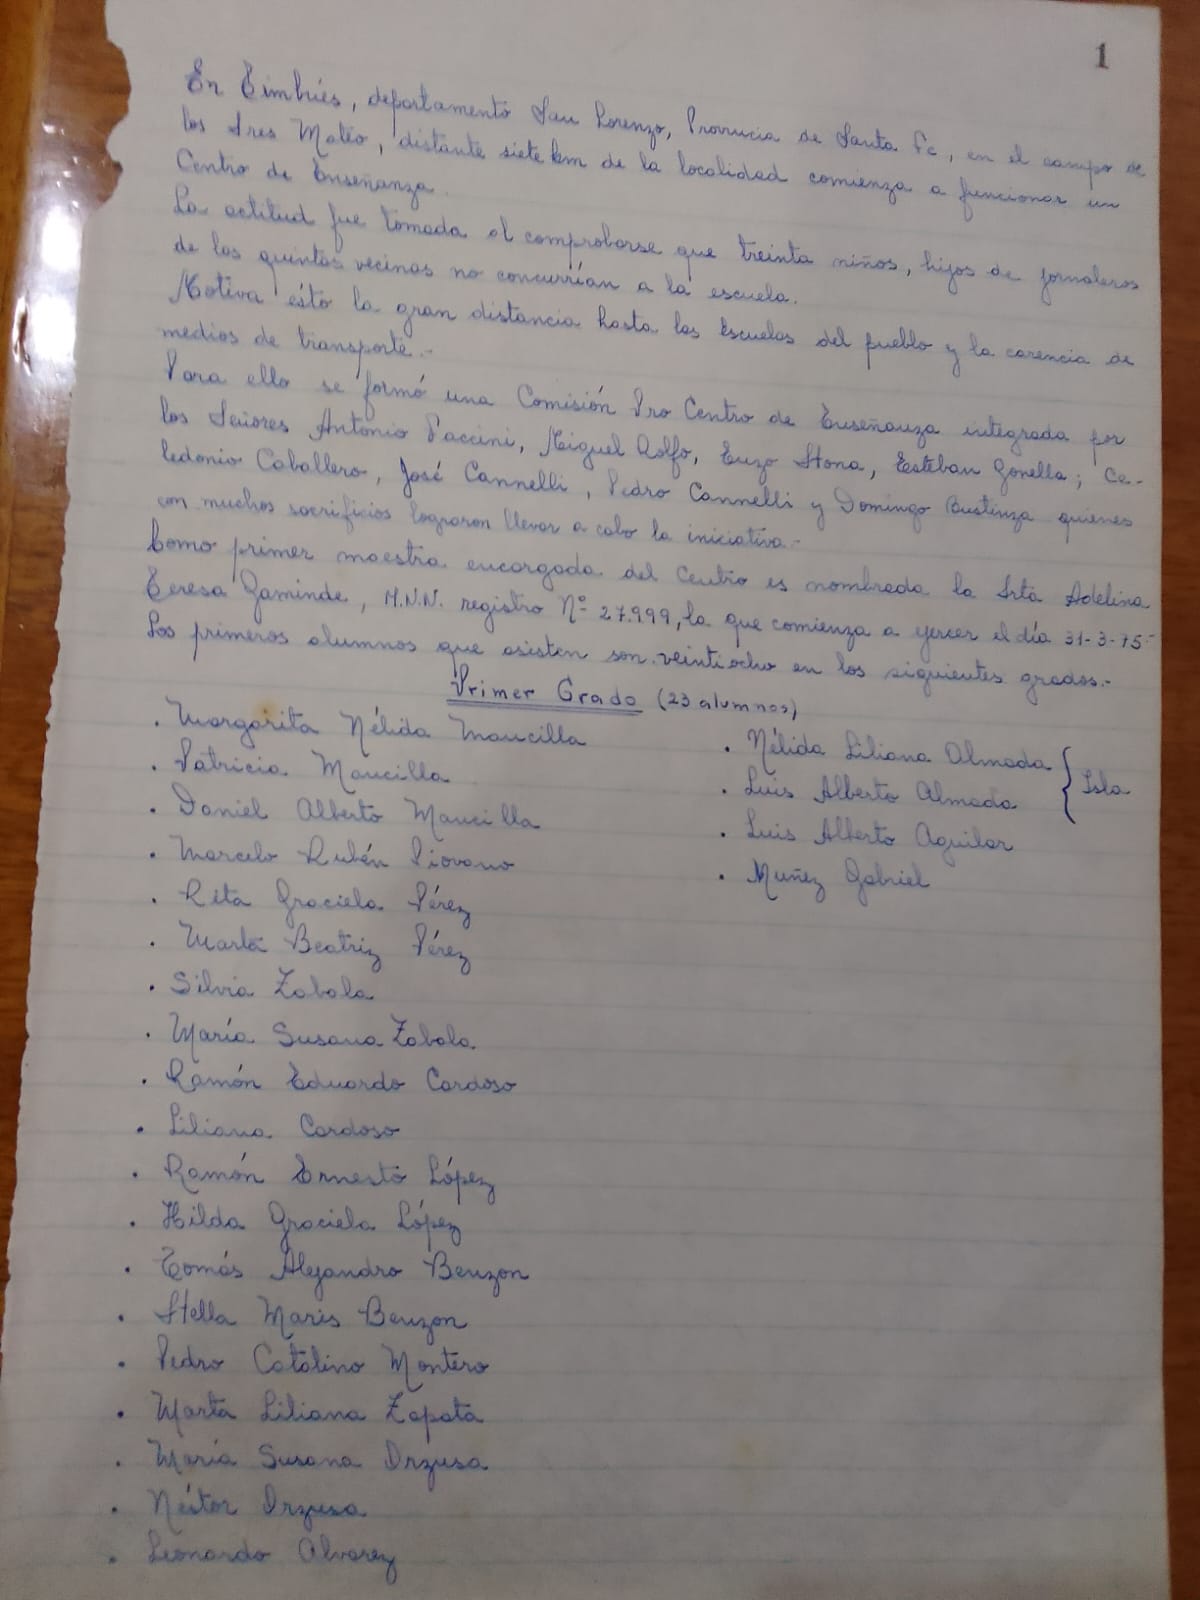 1
En Timbúes, departamento San Lorenzo, Provincia de Santa Fe, en el campo de
los Tres Mateo, distante siete km de la localidad comienza a funcionar un
Centro de Enseñanza.
La actitud fue tomada al comprobarse que treinta niños, hijos de jornaleros
de las quintas vecinas no concurrían a la escuela.
Motiva ésto la gran distancia hasta las Escuelas del pueblo y la carencia de
medios de transporte.-
Para ello se formó una Comisión Pro Centro de Enseñanza integrada por
los Señores Antonio Paccini, Miguel Rolfo, Enzo Stona, Esteban Gonella; Ce-
ledonio Caballero, José Cannelli, Pedro Cannelli y Domingo Bustinza quienes
con muchos sacrificios lograron llevar a cabo la iniciativa.-
Como primer maestra encargada del Centro es nombrada la Srta Adelina
Teresa Gaminde, M.N.N. registro Nº 27.999, la que comienza a ejercer el día 31-3-75-
Los primeros alumnos que asisten son veintiocho en los siguientes grados.-
Primer Grado (23 alumnos)
. Margarita Nélida Mancilla
. Patricia Mancilla
. Daniel Alberto Mancilla
. Marcelo Rubén Piovano
. Rita Graciela Pérez
. Marta Beatriz Pérez
. Silvia Zabala
. María Susana Zabala.
. Ramón Eduardo Cardoso
. Liliana Cardoso
. Ramón Ernesto López
. Hilda Graciela López
. Tomás Alejandro Benzon
. Stella Maris Benzon
. Pedro Catalino Montero
. Marta Liliana Zapata
. María Susana Orzusa
. Néstor Orzusa
. Leonardo Alvarez
. Nélida Liliana Almada
. Luis Alberto Almada
Isla
. Luis Alberto Aguilar
. Muñez Gabriel